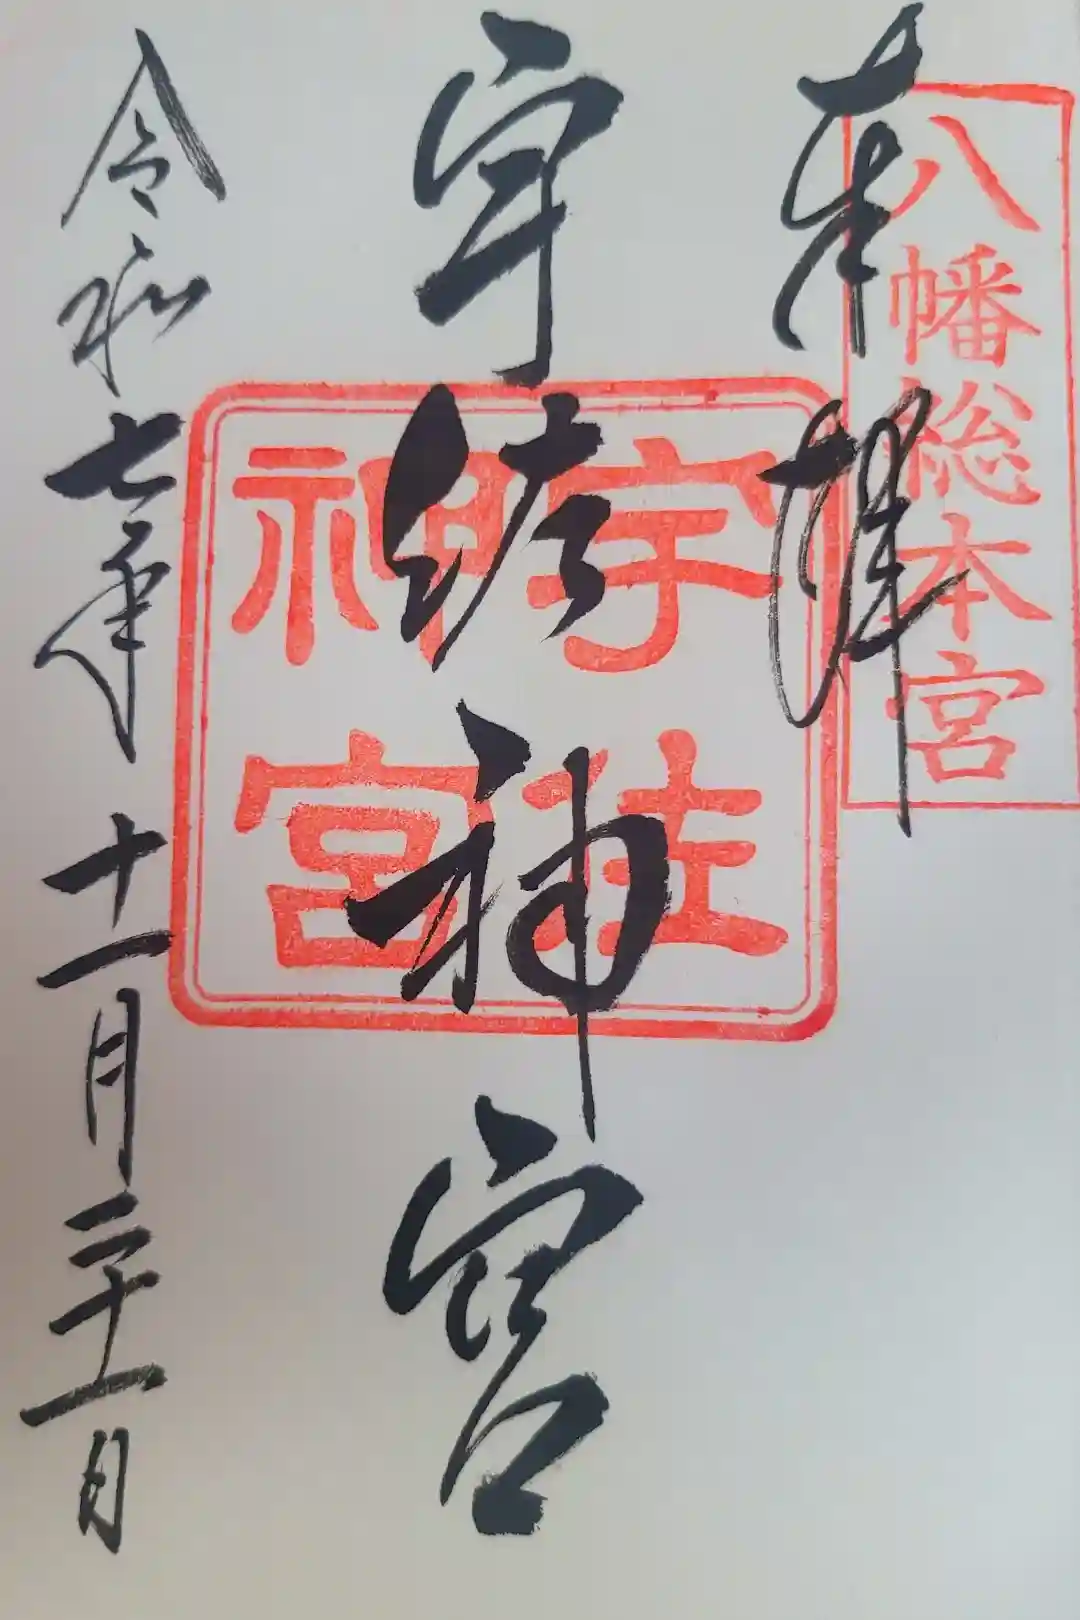 奉拝
八幡総本宮
宇佐神宮
宇佐
神宮
令和七年十一月二十一日